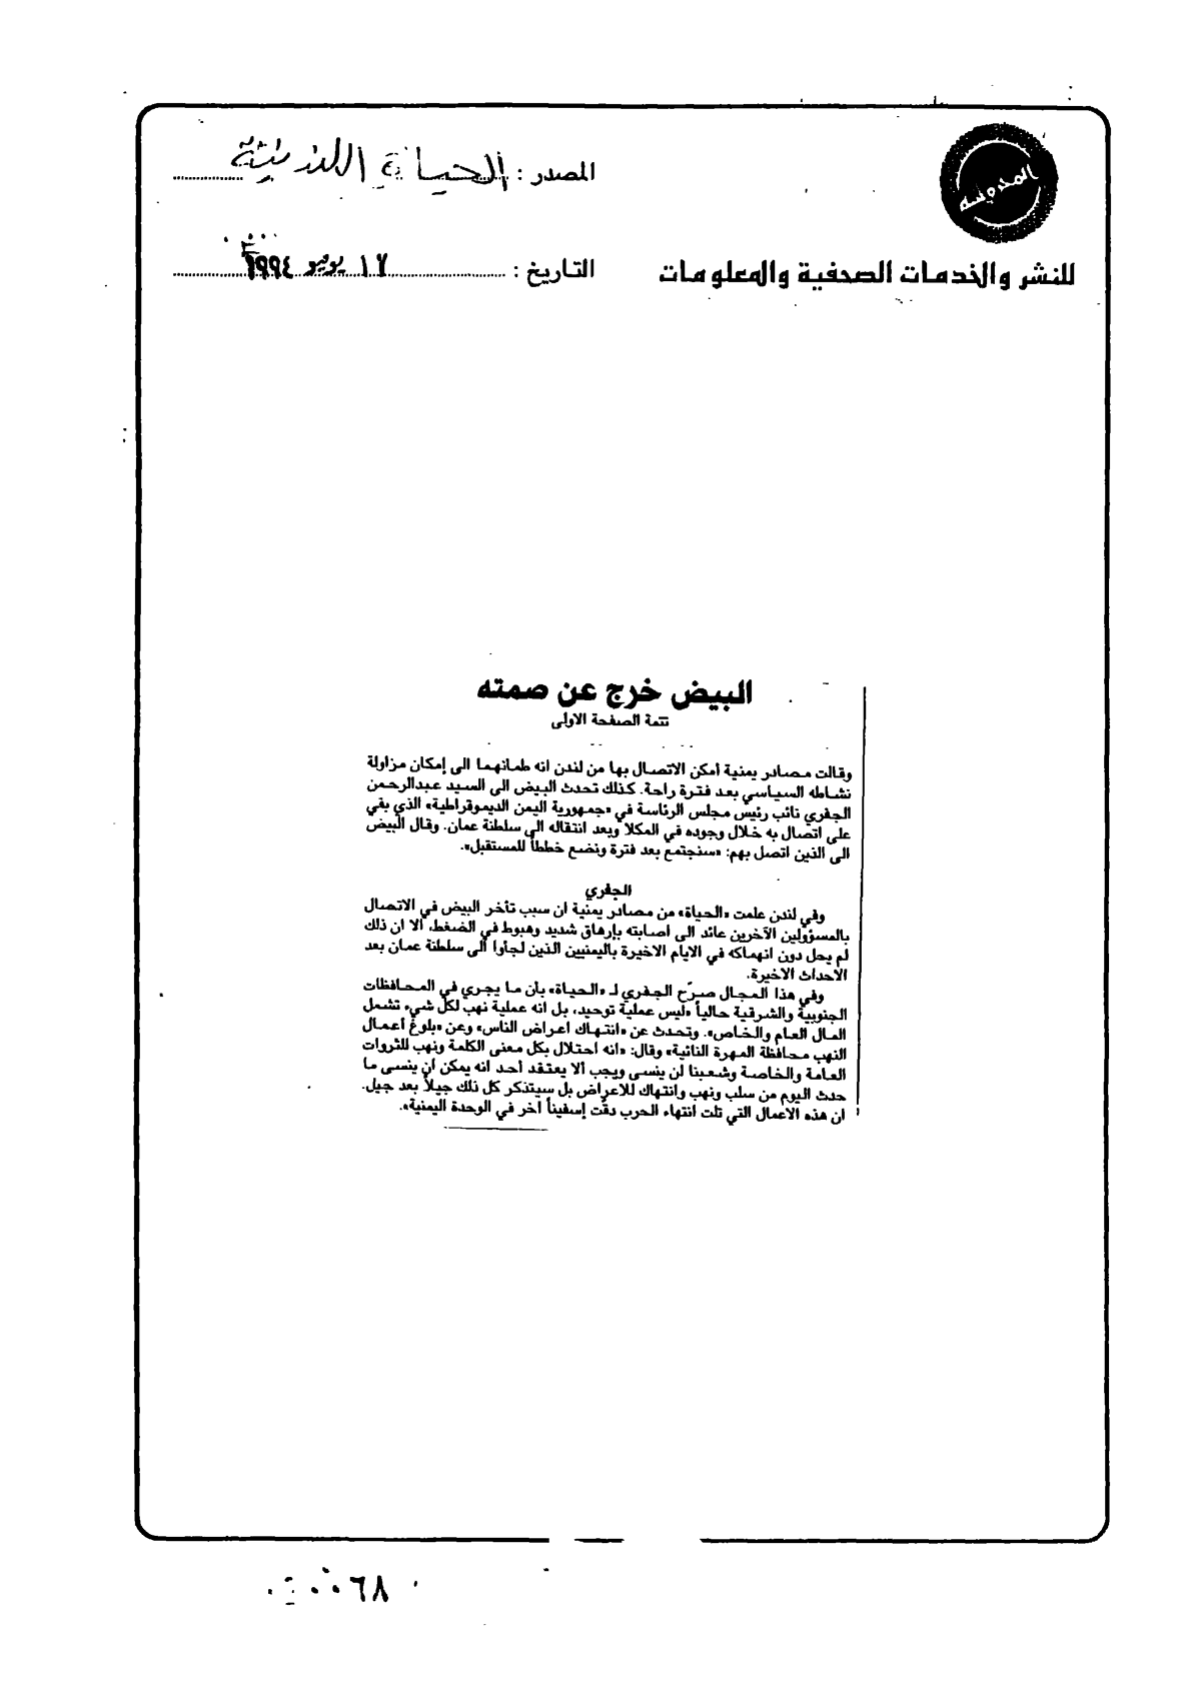 المحروسة
للنشر والخدمات الصحفية والمعلومات
المصدر : الحياة اللندنية
التاريخ : ١٧ يوليو ١٩٩٤
البيض خرج عن صمته
تتمة الصفحة الاولى
وقالت مصادر يمنية أمكن الاتصال بها من لندن انه طمانهما الى إمكان مزاولة
نشاطه السياسي بعد فترة راحة. كذلك تحدث البيض الى السيد عبدالرحمن
الجفري نائب رئيس مجلس الرئاسة في «جمهورية اليمن الديموقراطية» الذي بقي
على اتصال به خلال وجوده في المكلا وبعد انتقاله الى سلطنة عمان. وقال البيض
الى الذين اتصل بهم: «سنجتمع بعد فترة ونضع خططاً للمستقبل».
الجفري
وفي لندن علمت «الحياة» من مصادر يمنية ان سبب تأخر البيض في الاتصال
بالمسؤولين الآخرين عائد الى اصابته بإرهاق شديد وهبوط في الضغط، الا ان ذلك
لم يحل دون انهماكه في الايام الاخيرة باليمنيين الذين لجأوا الى سلطنة عمان بعد
الاحداث الاخيرة.
وفي هذا المجال صرّح الجفري لـ «الحياة» بأن ما يجري في المحافظات
الجنوبية والشرقية حالياً «ليس عملية توحيد، بل انه عملية نهب لكل شيء تشمل
المال العام والخاص». وتحدث عن «انتهاك اعراض الناس» وعن «بلوغ أعمال
النهب محافظة المهرة النائية» وقال: «انه احتلال بكل معنى الكلمة ونهب للثروات
العامة والخاصة وشعبنا لن ينسى ويجب ألا يعتقد أحد انه يمكن أن ينسى ما
حدث اليوم من سلب ونهب وانتهاك للاعراض بل سيتذكر كل ذلك جيلاً بعد جيل.
ان هذه الاعمال التي تلت انتهاء الحرب دقّت إسفيناً آخر في الوحدة اليمنية».